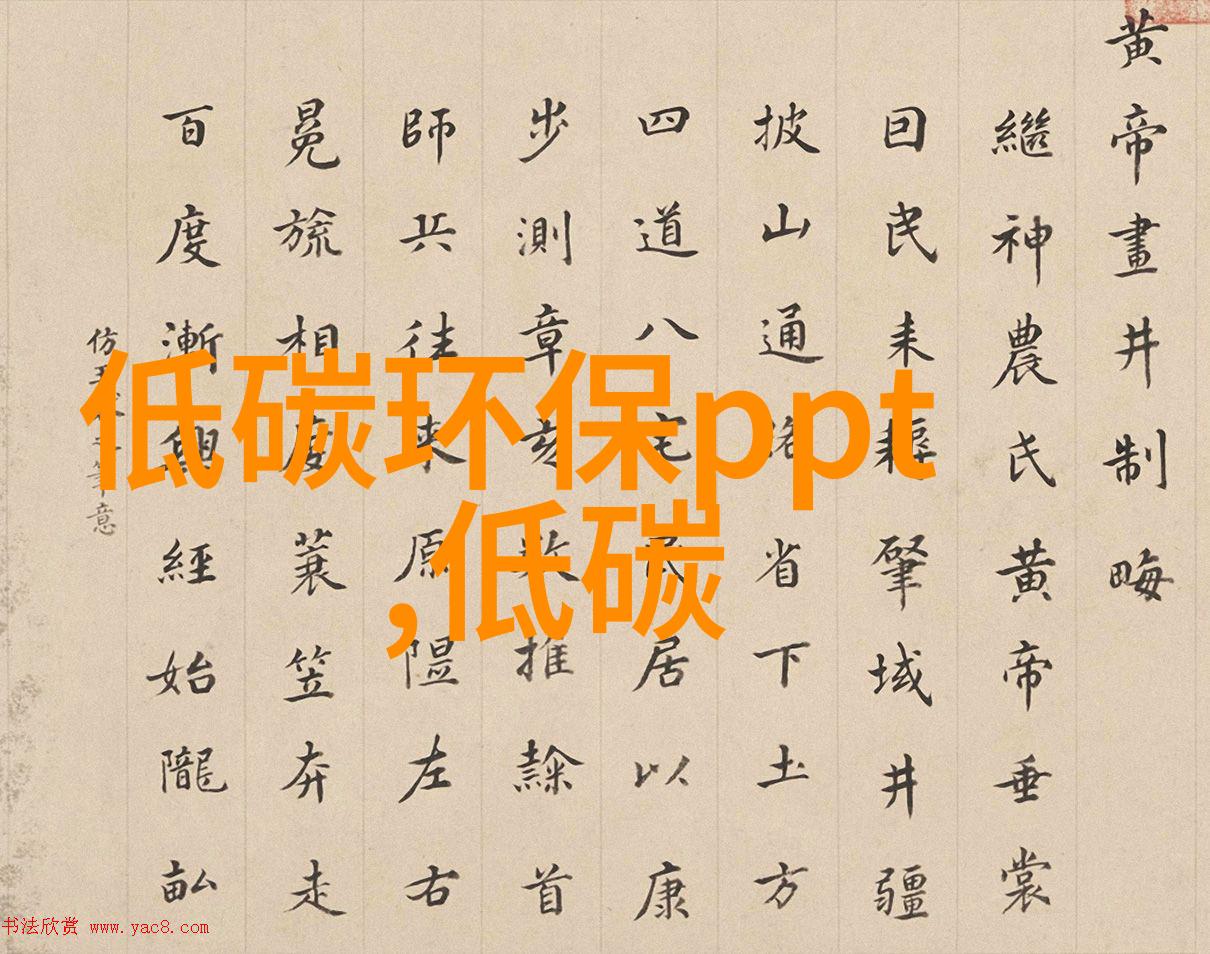 黄帝畫井制畮
繼神農氏黄帝垂裳
囙民耒肇域井疆
披山通洛省下土方
四道八宅民居以康
步測章亥數推隸首
師兵往來原隰左右
冕旒相度蓑笠奔走
百度漸經始隴畆
仿筆意
低碳环保ppt
,低碳
书法欣赏 www.yac8.com